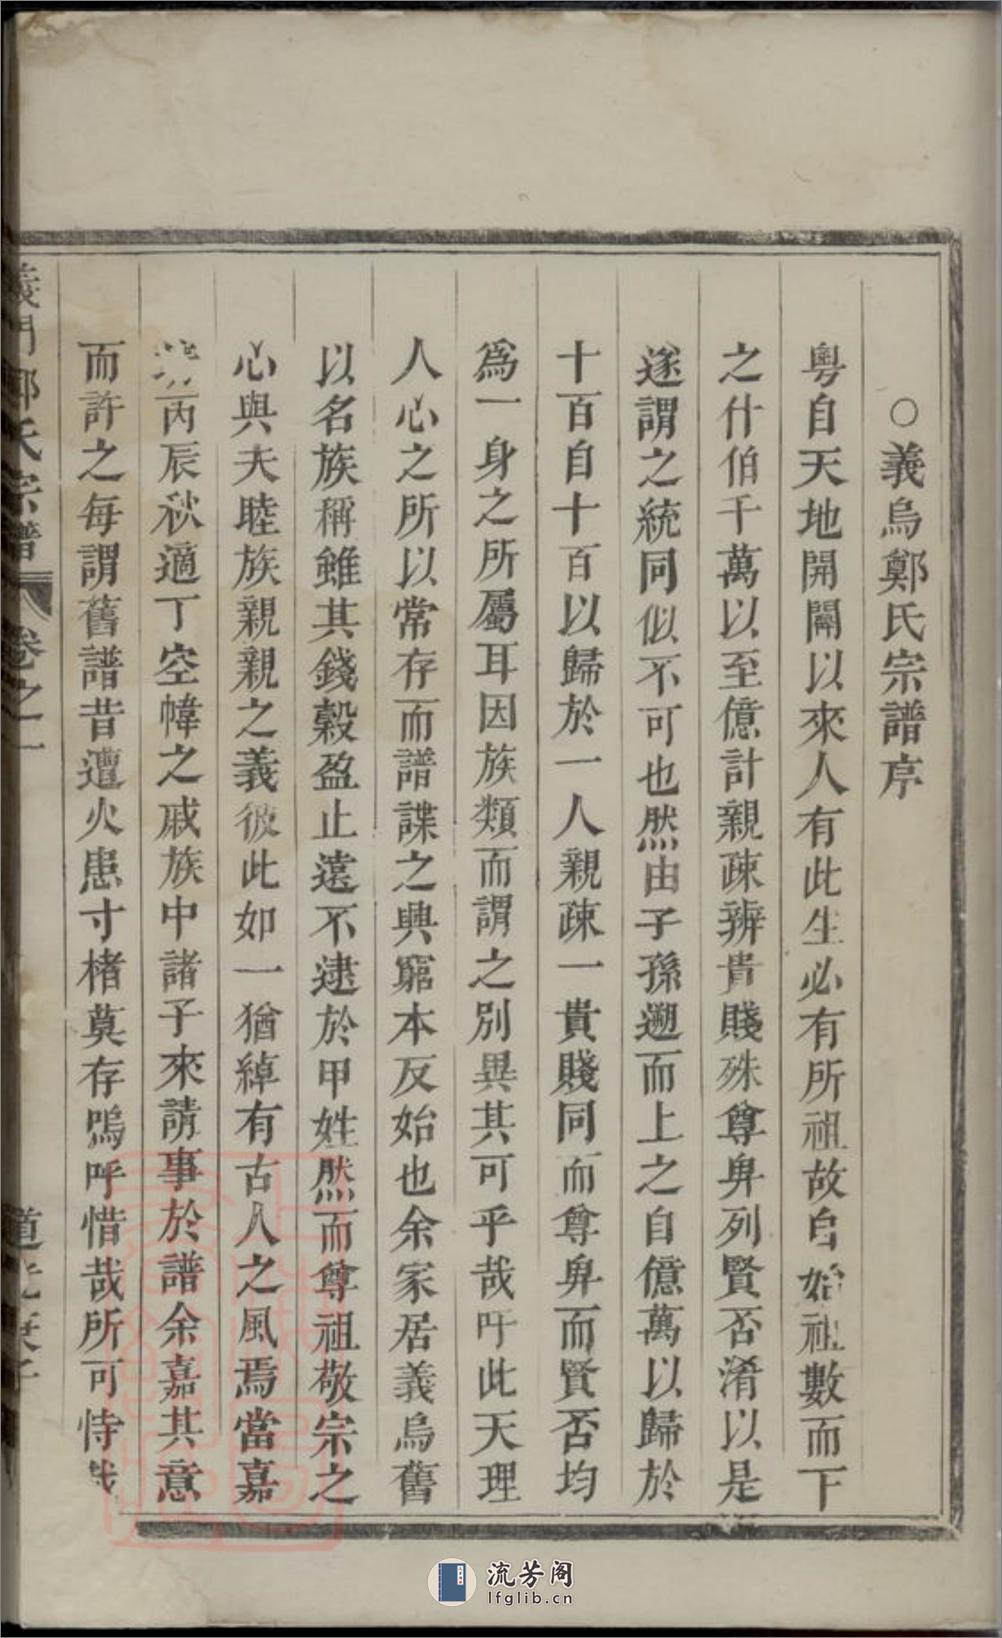 ○義烏鄭氏宗譜序
粵自天地開闢以來人有此生必有所祖故自始祖數而下
之什伯千萬以至億計親疎辨貴賤殊尊卑列賢否淆以是
遂謂之統同似不可也然由子孫遡而上之自億萬以歸於
十百自十百以歸於一人親疎一貴賤同而尊卑而賢否均
爲一身之所屬耳因族類而謂之別異其可乎哉吁此天理
人心之所以常存而譜諜之興窮本反始也余家居義烏舊
以名族稱雖其錢穀盈止遠不逮於甲姓然而尊祖敬宗之
心與夫睦族親親之義彼此如一猶綽有古人之風焉當嘉
丙辰秋適丁空幃之戚族中諸子來請事於譜余嘉其意
而許之每謂舊譜昔遭火患寸楮莫存嗚呼惜哉所可恃哉
義門鄭氏宗譜 卷之一 道光
流芳阁
lfglib.cn